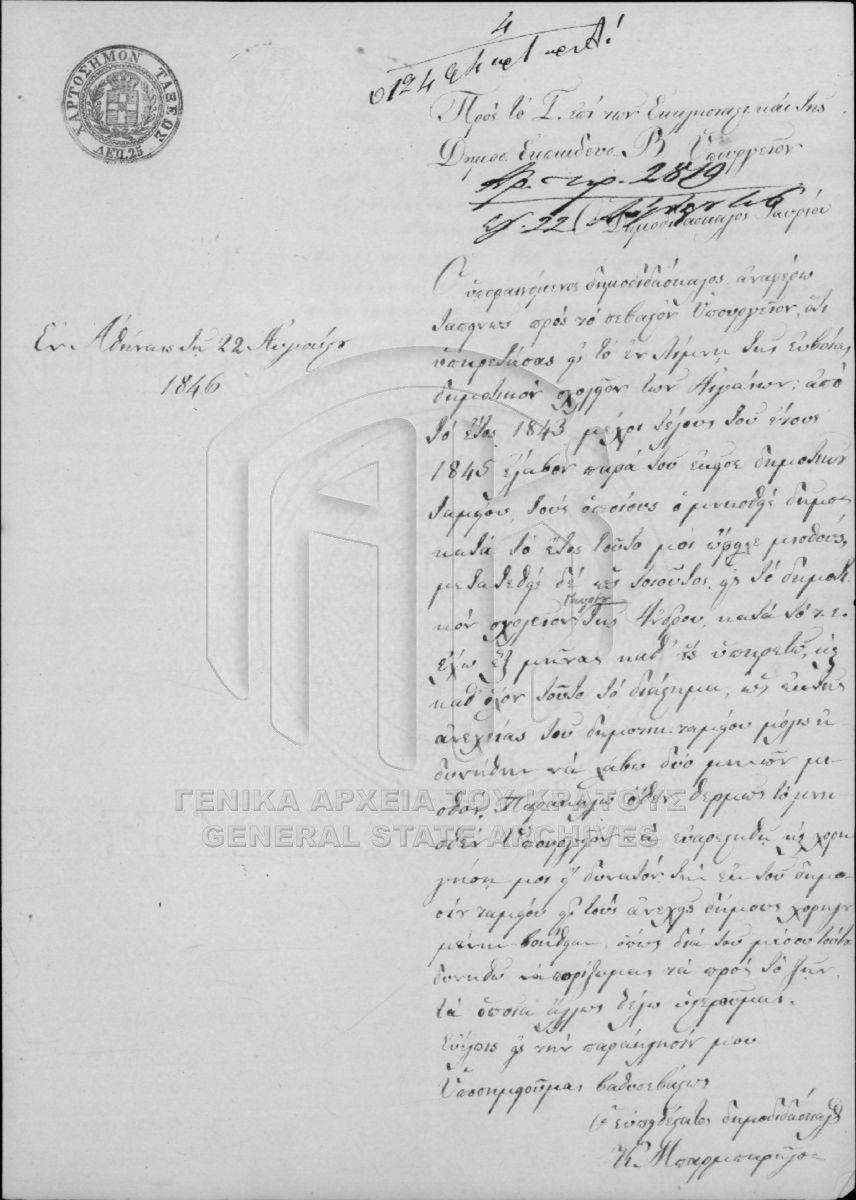 ΧΑΡΤΟΣΗΜΟΝ ΤΑΞΕΩΣ
ΛΕΠ. 25
4
Πρὸς τὸ Γ. ἐπὶ τῶν Ἐκκλησιαστικ. καὶ τῆς
Δημοσ. Ἐκπαιδεύσ. Β. Ὑπουργεῖον
Ἀρ. πρ. 2819
22
Ὁ Δημοδιδάσκαλος Γαυρίου
Ἐν Ἀθήναις τῇ 22 Αὐγούστου
1846
Ὁ ὑποφαινόμενος δημοδιδάσκαλος ἀναφέρω
ταπεινῶς πρὸς τὸ σεβαστὸν Ὑπουργεῖον, ὅτι
ὑπηρετήσας εἰς τὸ ἐν Λίμνῃ τῆς Εὐβοίας
δημοτικὸν σχολεῖον τῶν Αἰγαίων, ἀπὸ
τὸ ἔτος 1843 μέχρι τέλους τοῦ ἔτους
1845 ἔλαβον παρὰ τοῦ ἐκεῖσε δημοτικοῦ
ταμείου, τοὺς ὁποίους ὁ μνησθεὶς δῆμος
κατὰ τὸ ἔτος τοῦτο μοὶ ὤφειλε μισθούς,
μετατεθεὶς δὲ ὡς τοιοῦτος εἰς τὸ δημοτι
κὸν σχολεῖον Γαυρίου τῆς Ἄνδρου, κατὰ τὸ τ. ἔ.
ἔχω ἓξ μῆνας καθ' οὓς ὑπηρετῶ, εἰς
καθ' ὅλον τοῦτο τὸ διάστημα, ὡς ἐκ τῆς
ἀνεχείας τοῦ δημοτικ. ταμείου μόλις ἐ
δυνήθην νὰ λάβω δύο μηνῶν μι
σθόν. Παρακαλῶ ὅθεν θερμῶς τὸ μνη
σθὲν Ὑπουργεῖον νὰ εὐαρεστηθῇ εἰς χορή
γησίν μοι εἰ δυνατὸν τὴν ἐκ τοῦ δημο
σίου ταμείου εἰς τοὺς ἀνεχεῖς δήμους χορηγου
μένην βοήθειαν, ὅπως διὰ τοῦ μέσου τούτου
δυνηθῶ νὰ πορίζωμαι τὰ πρὸς τὸ ζῆν,
τὰ ὁποῖα ἄλλως θέλω ὑστεροῦμαι.
Εὔελπις εἰς τὴν παράκλησίν μου
Ὑποσημειοῦμαι βαθυσεβάστως
Ὁ εὐπειθέστατος δημοδιδάσκαλος
Κ.
ΓΕΝΙΚΑ ΑΡΧΕΙΑ ΤΟΥ ΚΡΑΤΟΥΣ
GENERAL STATE ARCHIVES